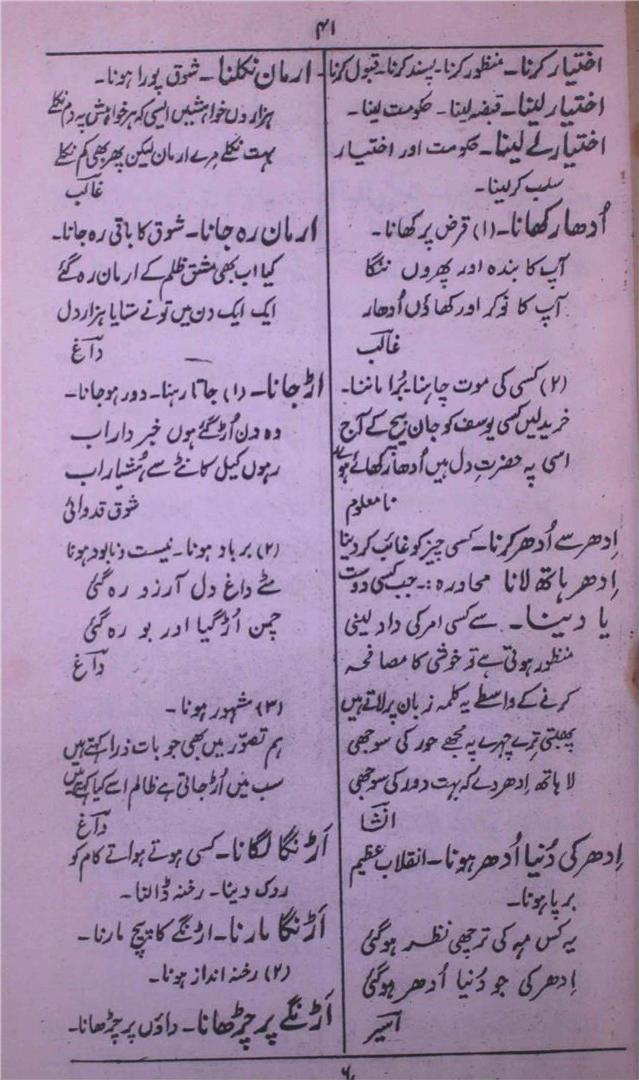 ۴۱
اختیار کرنا۔ منظور کرنا۔ پسند کرنا۔ قبول کرنا۔
اختیار لینا۔ قبضہ لینا۔ حکومت لینا۔
اختیار لے لینا۔ حکومت اور اختیار
سلب کر لینا۔
اُدھار کھانا۔ (۱) قرض پر کھانا۔
آپ کا بندہ اور پھروں ننگا
آپ کا نوکر اور کھاؤں اُدھار
غالب
(۲) کسی کی موت چاہنا۔ بُرا ماننا۔
خرید لیں کسی یوسف کو جان بیچ کے آج
اسی پہ حضرتِ دل ہیں اُدھار کھائے ہوئے
نامعلوم
اِدھر سے اُدھر کرنا۔ کسی چیز کو غائب کر دینا
اِدھر ہاتھ لانا محاورہ :۔ جب کسی دوست
یا دینا۔ سے کسی امر کی داد لینی
منظور ہوتی ہے تو خوشی کا مصافحہ
کرنے کے واسطے یہ کلمہ زبان پر لاتے ہیں
پھبتی ترے چہرے پہ مجھے حور کی سوجھی
لا ہاتھ اِدھر دے کہ بہت دور کی سوجھی
انشا
اِدھر کی دُنیا اُدھر ہونا۔ انقلاب عظیم
برپا ہونا۔
یہ کس مہ کی ترچھی نظر ہو گئی
اِدھر کی جو دُنیا اُدھر ہو گئی
اسیر
ارمان نکلنا۔ شوق پورا ہونا۔
ہزاروں خواہشیں ایسی کہ ہر خواہش پہ دم نکلے
بہت نکلے مرے ارمان لیکن پھر بھی کم نکلے
غالب
ارمان رہ جانا۔ شوق کا باقی رہ جانا۔
کیا اب بھی مشق ظلم کے ارمان رہ گئے
ایک ایک دن میں تو نے ستایا ہزار دل
داغ
اڑ جانا۔ (۱) جاتا رہنا۔ دور ہو جانا۔
وہ دن اُڑ گئے ہوں خبردار اب
رہوں کیل کانٹے سے ہُشیار اب
شوق قدوائی
(۲) برباد ہونا۔ نیست و نابود ہونا
مٹے داغ دل آرزو رہ گئی
چمن اُڑ گیا اور بو رہ گئی
داغ
(۳) مشہور ہونا۔
ہم تصوّر میں بھی جو بات ذرا کہتے ہیں
سب میں اُڑ جاتی ہے ظالم اسے کیا کہتے ہیں
داغ
اَڑنگا لگانا۔ کسی ہوتے ہواتے کام کو
روک دینا۔ رخنہ ڈالنا۔
اَڑنگا مارنا۔ اڑنگے کا پیچ مارنا۔
(۲) رخنہ انداز ہونا۔
اَڑنگے پر چڑھانا۔ داؤں پر چڑھانا۔